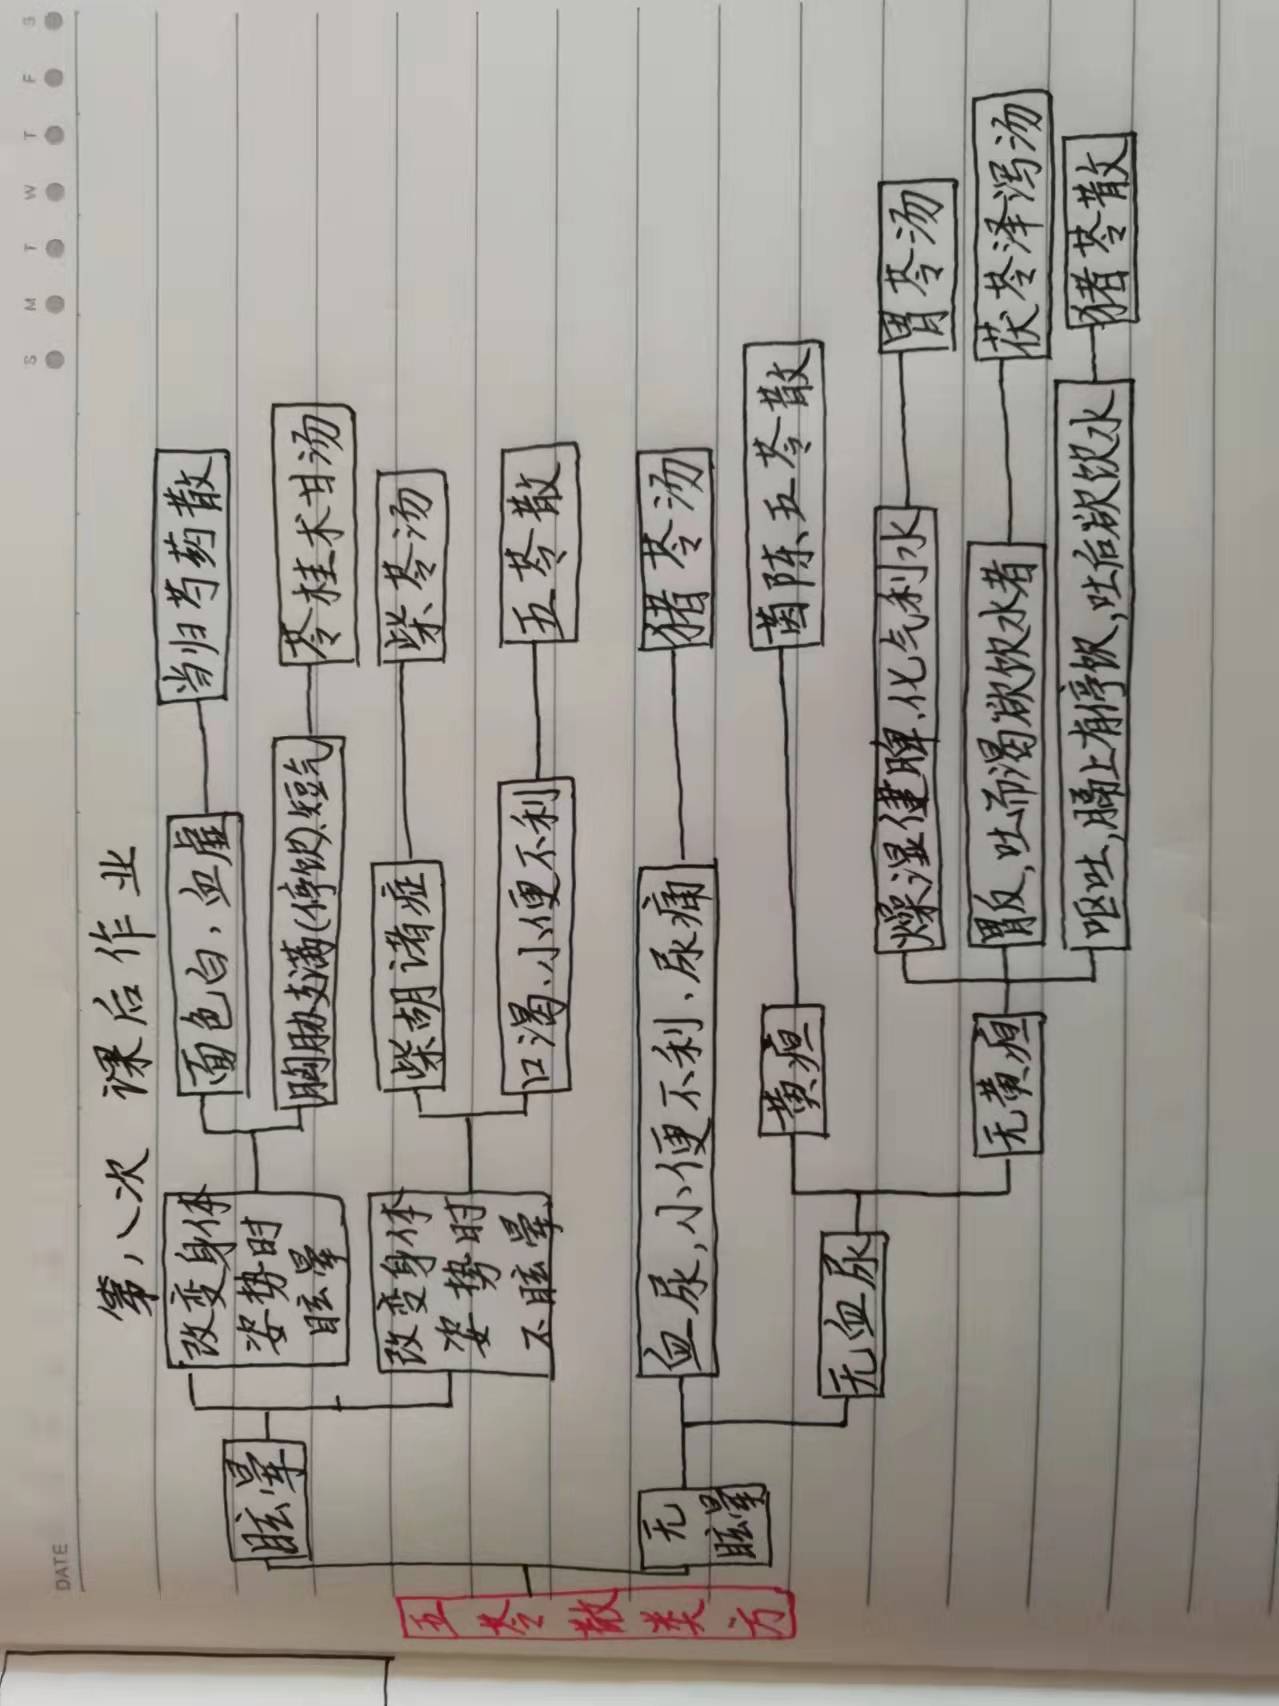 DATE
S M T W T F S
第八次 课后作业
五苓散类方
眩晕
改变身体
姿势时
眩晕
面色白、血虚
当归芍药散
胸胁支满(停饮)短气
苓桂术甘汤
改变身体
姿势时
不眩晕
柴胡诸症
柴苓汤
口渴、小便不利
五苓散
无
眩晕
血尿,小便不利、尿痛
猪苓汤
无血尿
黄疸
茵陈五苓散
无黄疸
燥湿健脾、化气利水
胃苓汤
胃反,吐而渴欲饮水者
茯苓泽泻汤
呕吐,膈上有停饮,吐后欲饮水
猪苓散